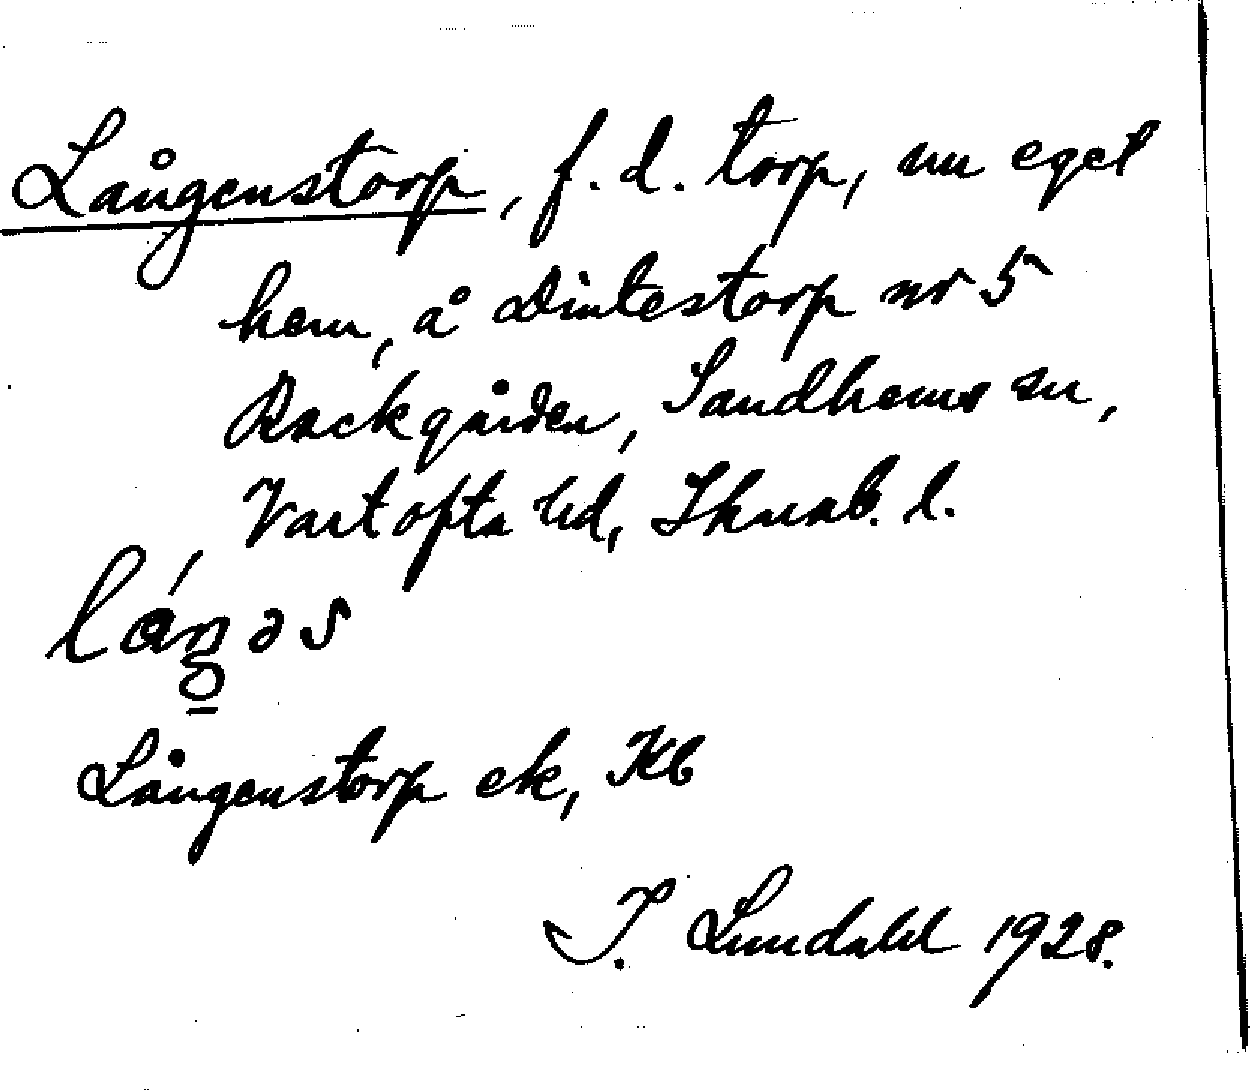 Långenstorp, f. d. torp, nu eget
hem, å Dintestorp nr 5
Backgården, Sandhems sn,
Vartofta hd, Skarab. l.
Långenstorp ek, Kb
I. Lundahl 1928.